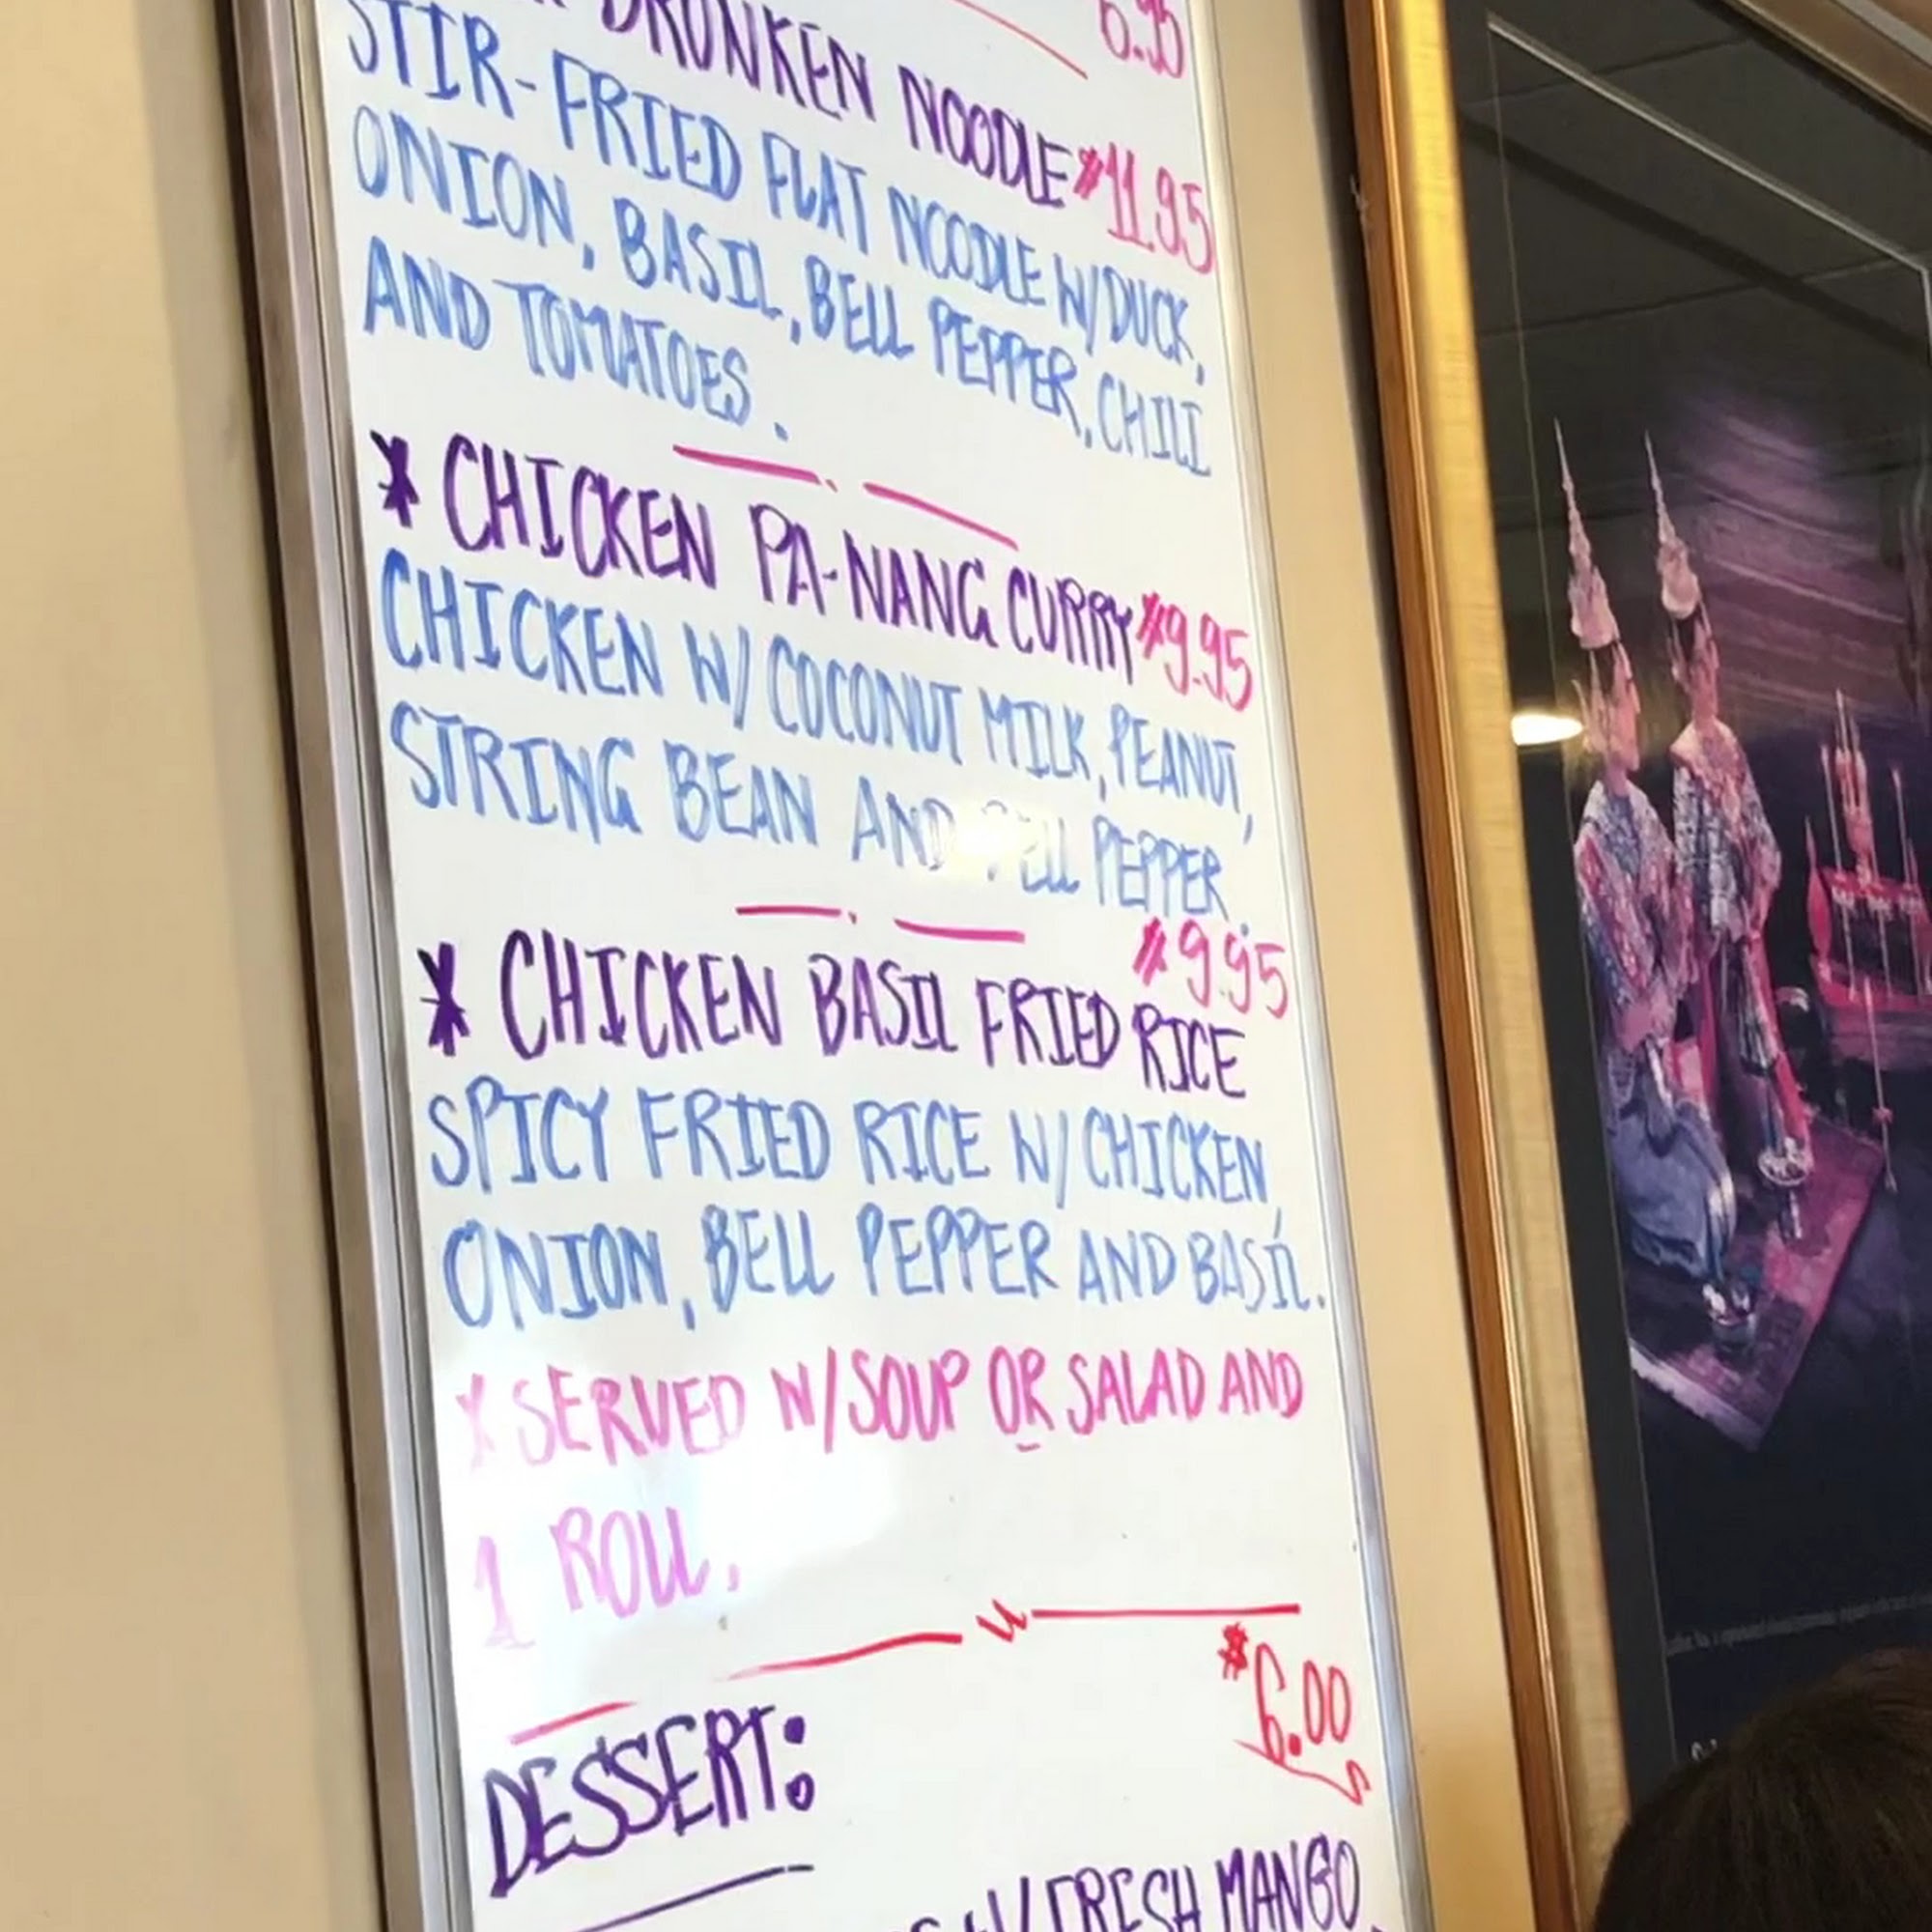 DRUNKEN NOODLE $11.95
STIR-FRIED FLAT NOODLE W/DUCK,
ONION, BASIL, BELL PEPPER, CHILI
AND TOMATOES.
* CHICKEN PA-NANG CURRY $9.95
CHICKEN W/ COCONUT MILK, PEANUT,
STRING BEAN AND BELL PEPPER.
$9.95
* CHICKEN BASIL FRIED RICE
SPICY FRIED RICE W/ CHICKEN,
ONION, BELL PEPPER AND BASIL.
* SERVED W/SOUP OR SALAD AND
1 ROLL.
$6.00
DESSERT:
W/ FRESH MANGO